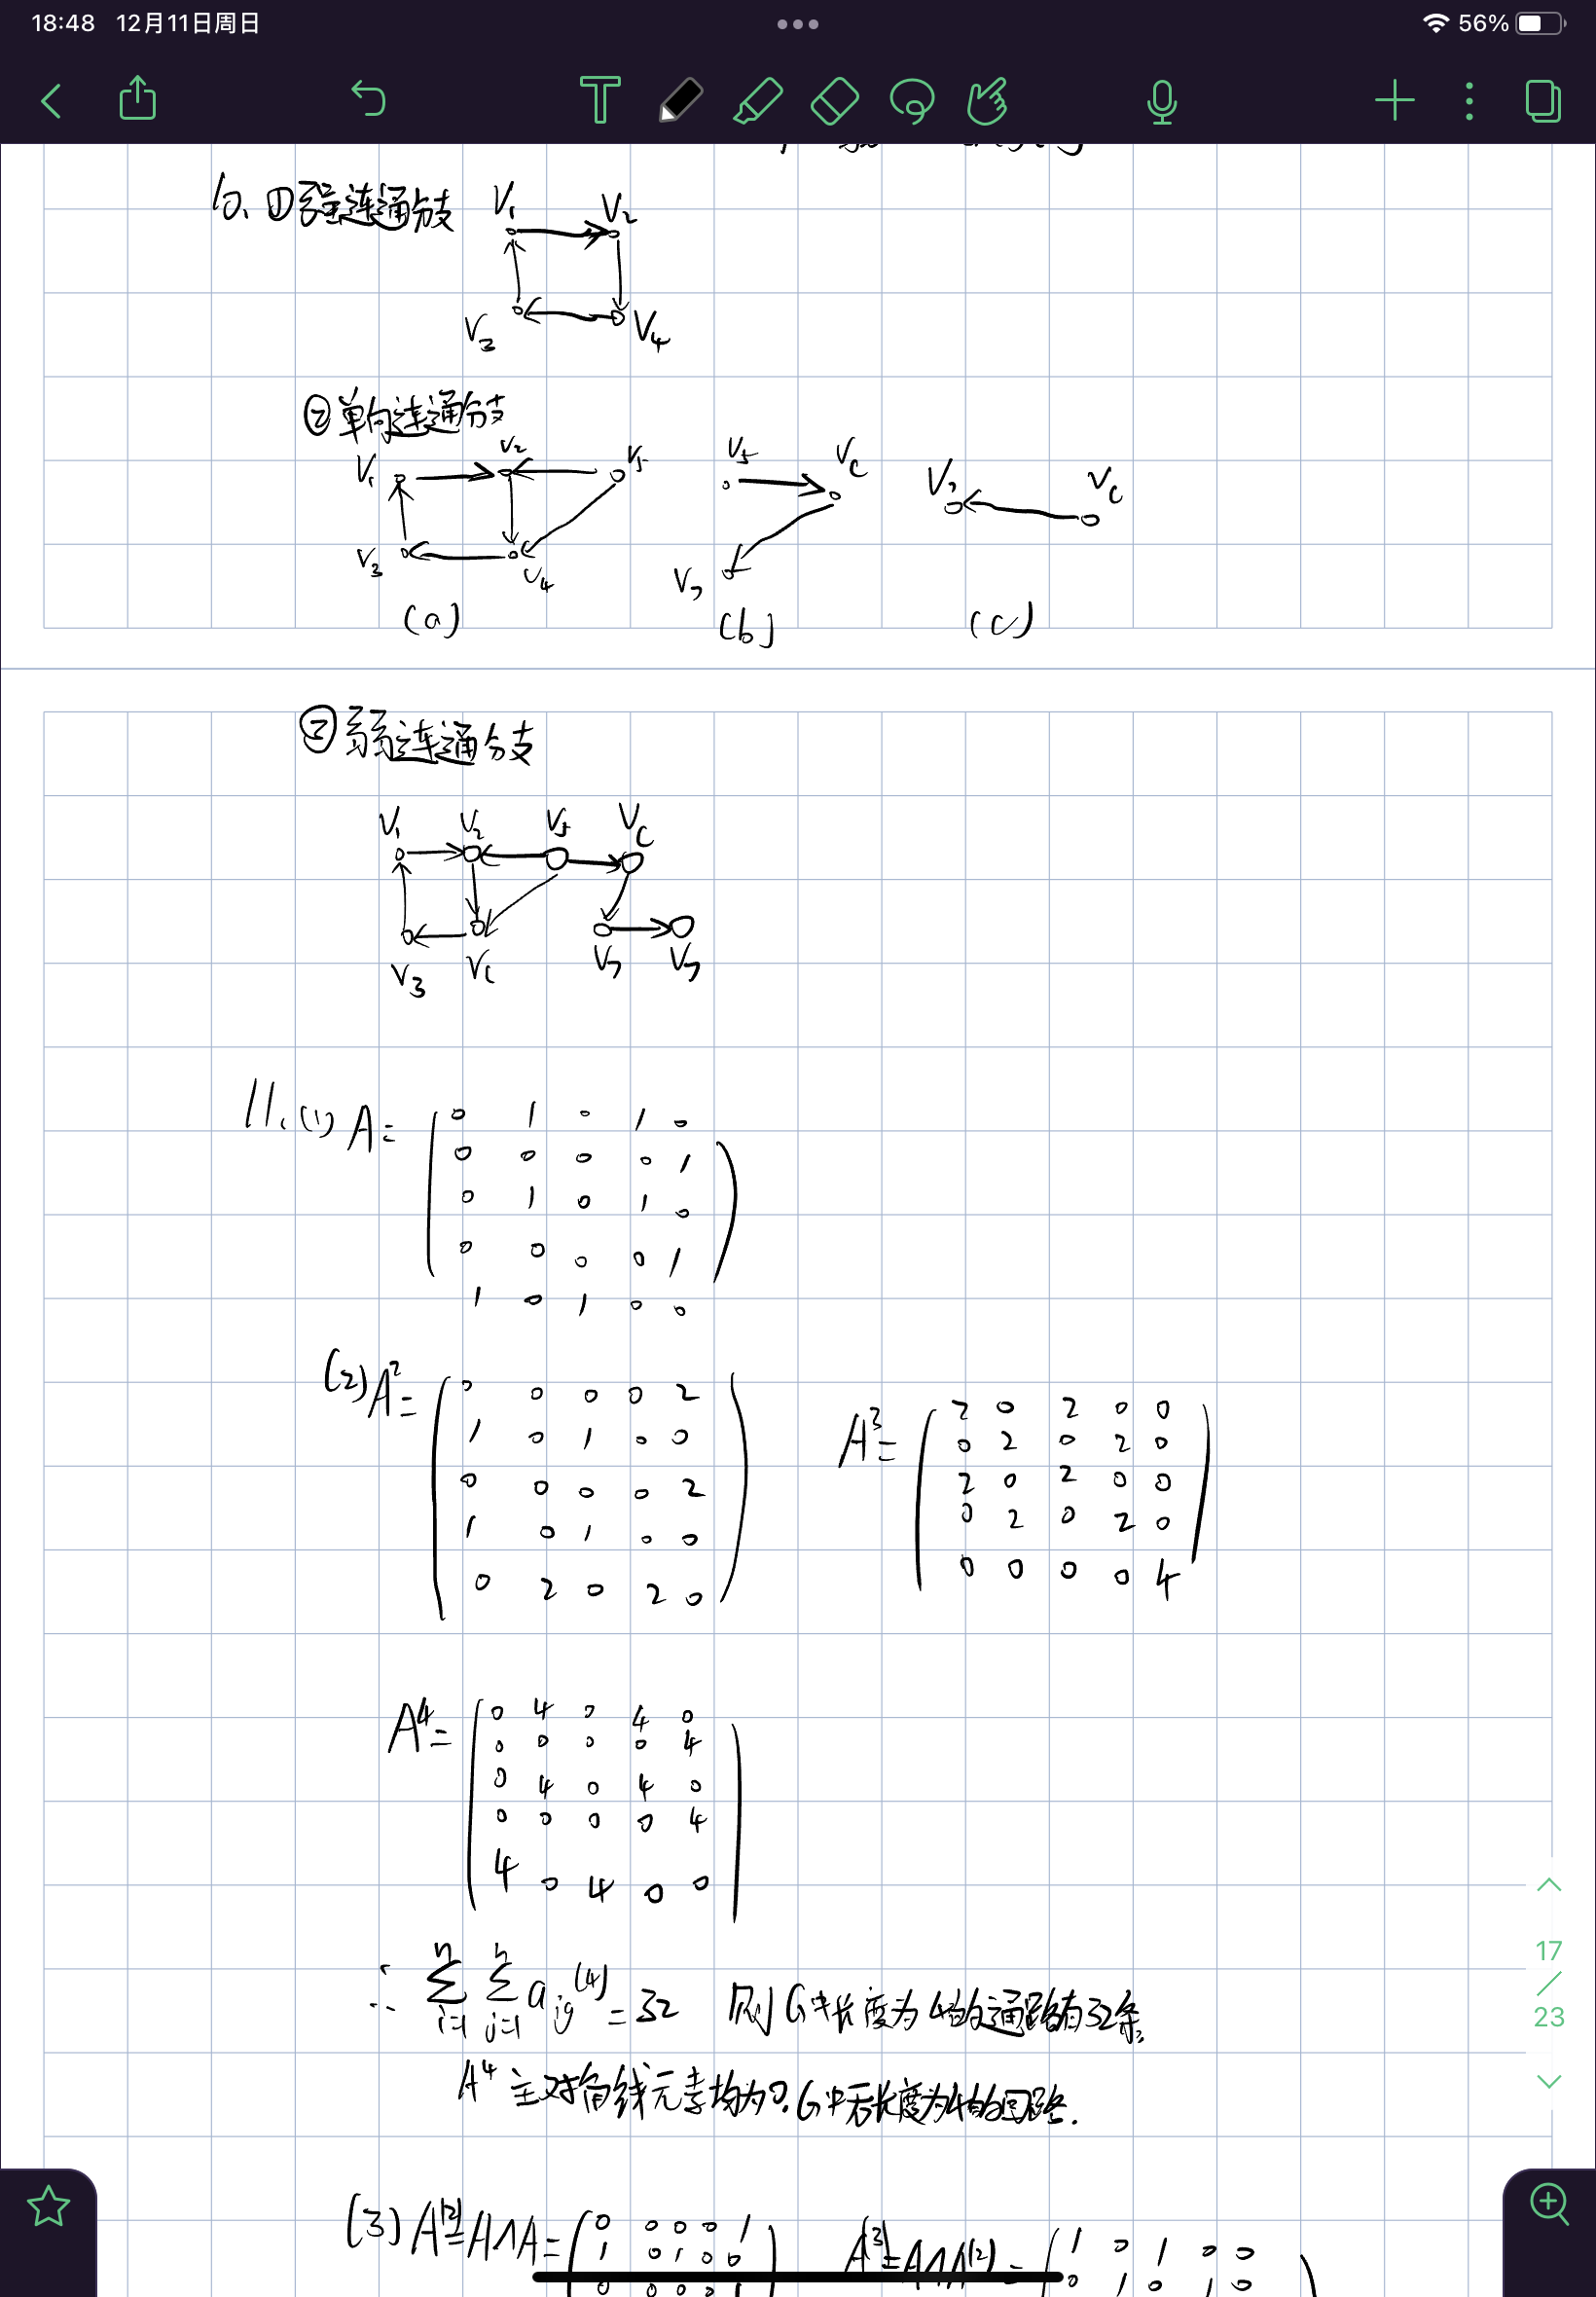 18:48 12月11日周日
56%
10、①强连通分支
V₁ V₂
V₃ V₄
②单向连通分支
V₁ V₂ V₅ V₅ V₆ V₇ V₆
V₃ V₄ V₇
(a) (b) (c)
③弱连通分支
V₁ V₂ V₅ V₆
V₃ V₇ V₇
11、(1) A=
0 1 0 1 0
0 0 0 0 1
0 1 0 1 0
0 0 0 0 1
1 0 1 0 0
(2) A²=
0 0 0 0 2
1 0 1 0 0
0 0 0 0 2
1 0 1 0 0
0 2 0 2 0
A³=
2 0 2 0 0
0 2 0 2 0
2 0 2 0 0
0 2 0 2 0
0 0 0 0 4
A⁴=
0 4 0 4 0
0 0 0 0 4
0 4 0 4 0
0 0 0 0 4
4 0 4 0 0
∴ ∑ⁿᵢ₌₁ ∑ⁿⱼ₌₁ aᵢⱼ⁽⁴⁾=32 则G中长度为4的通路有32条
A⁴主对角线元素均为0,G中无长度为4的回路.
17
/
23
(3) A⁽²⁾=A∧A=
0 0 0 0 1
1 0 1 0 0
A⁽³⁾=A∧A⁽²⁾=
1 0 1 0 0
0 1 0 1 0